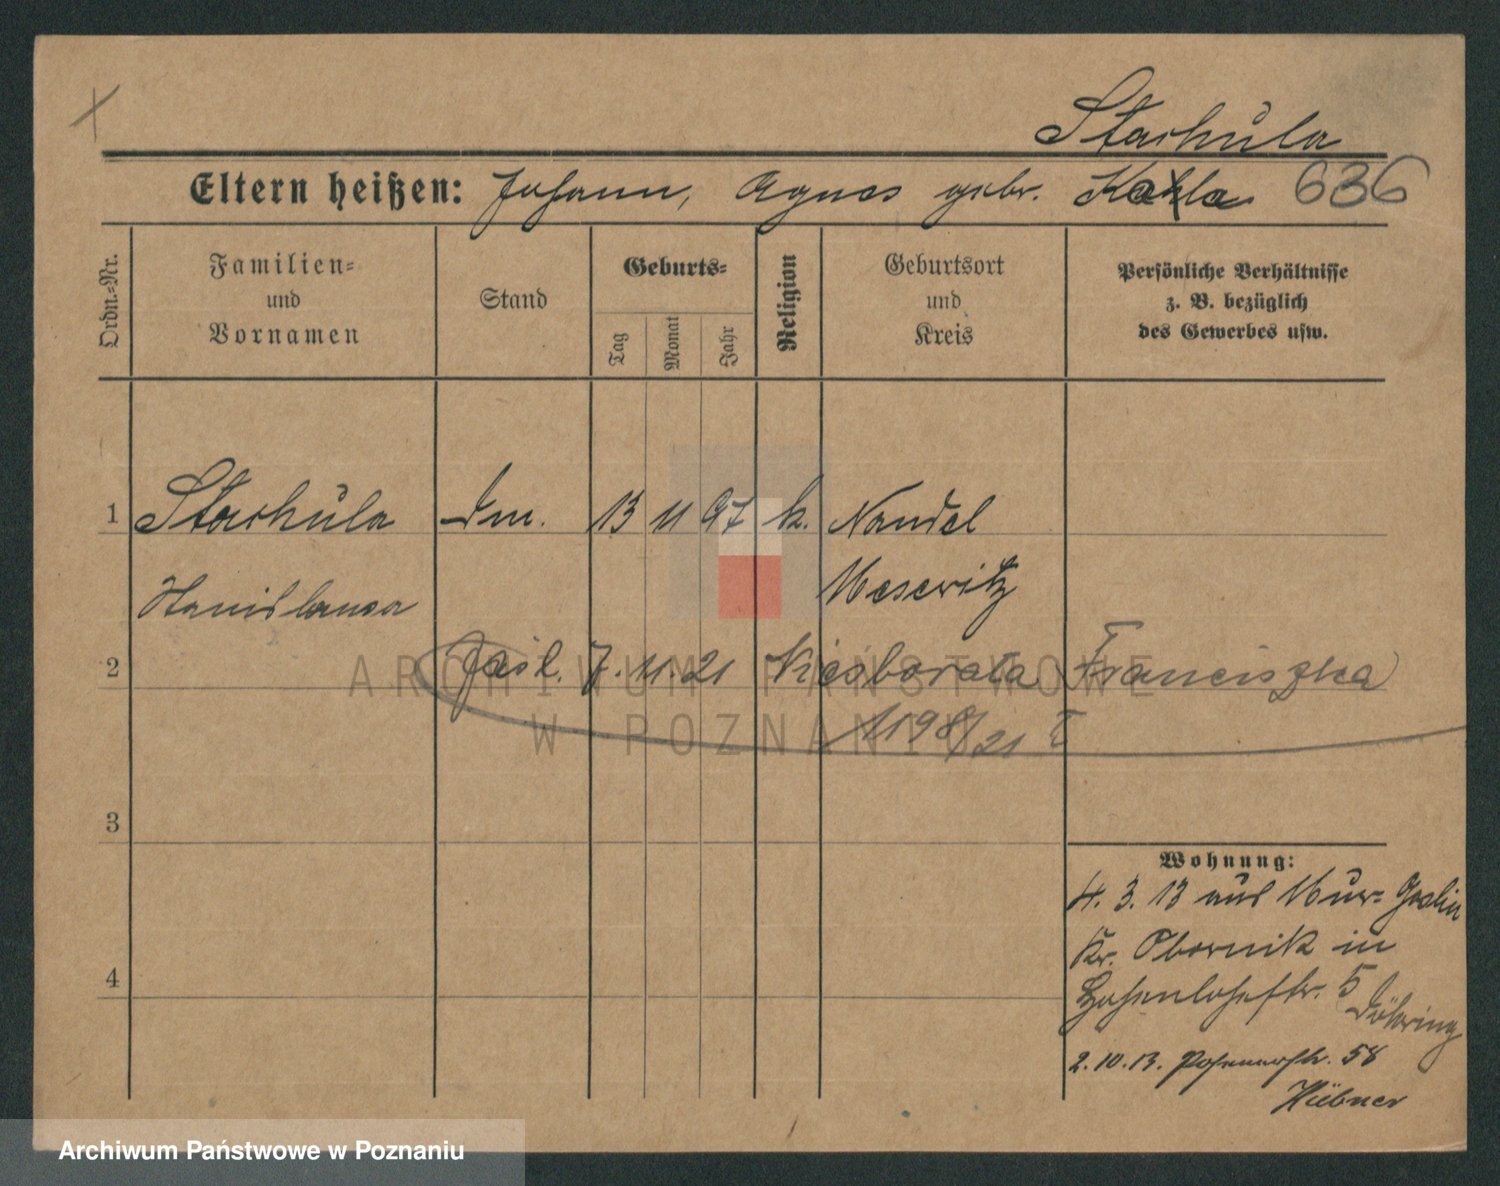 Stachula
Eltern heißen: Johann, Agnes gebr. Kahla 636
Ordn.-Nr.
Familien-
und
Vornamen
Stand
Geburts-
Tag
Monat
Jahr
Religion
Geburtsort
und
Kreis
Persönliche Verhältnisse
z. B. bezüglich
des Gewerbes usw.
1 Stachula Dm. 13 11 97 k. Nandel
Stanislawa Meseritz
2 7. 11. 21 Franciszka
1198/21
3
4
Wohnung:
4. 3. 13 aus Mur-Goslin
Kr. Obornik in
Hohenlohestr. 5
Döhring
2. 10. 13. Posenerstr. 58
Hübner
ARCHIWUM PAŃSTWOWE
W POZNANIU
Archiwum Państwowe w Poznaniu